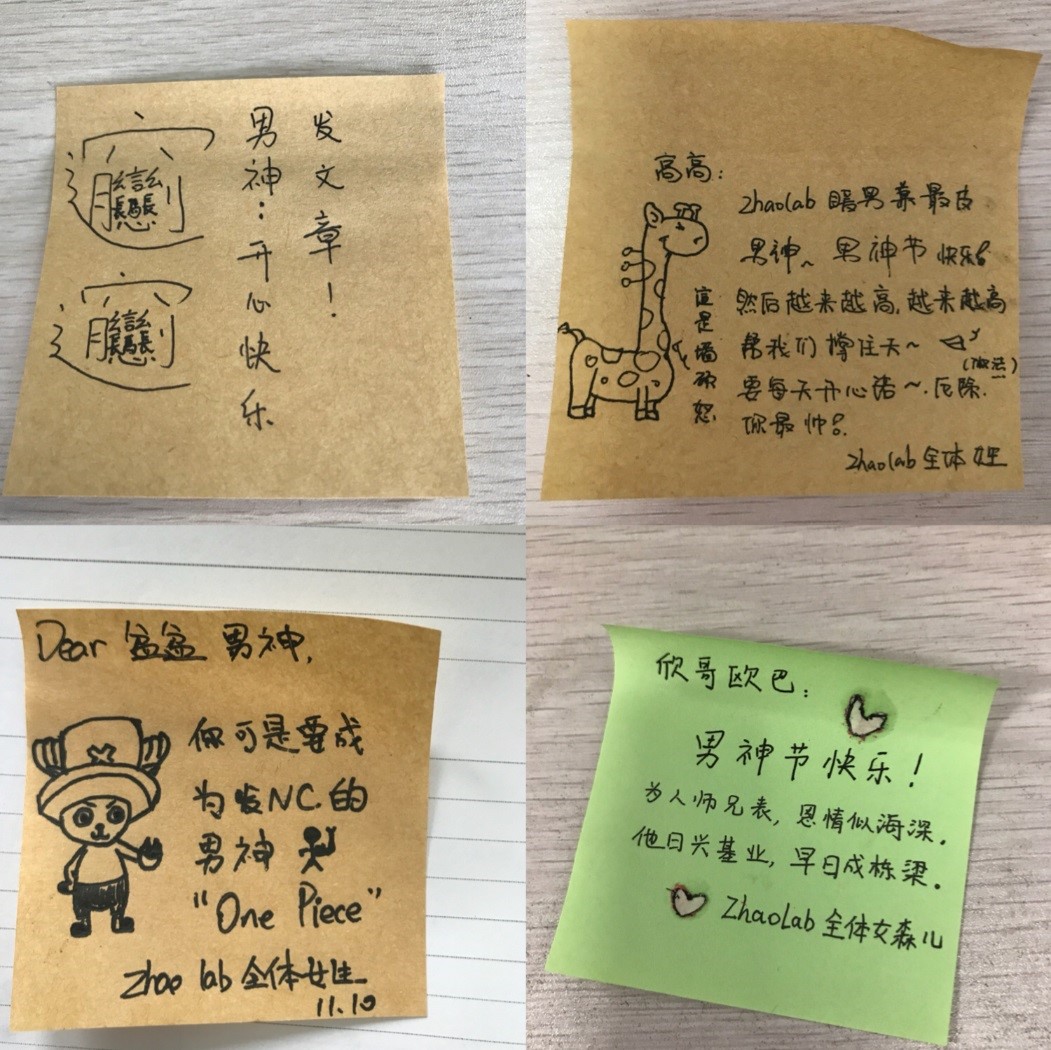 𰻞
𰻞
男神:开心快乐
发文章!
高高:
zhaolab 暖男兼最皮
男神~ 男神节快乐!
然后越来越高,越来越高
帮我们撑住天~
要每天开心诺~.
你最帅!
zhaolab 全体女生
这是
Dear 男神,
你可是要成
为发NC的
男神
"One Piece"
zhao lab 全体女生
11.10
欣哥欧巴:
男神节快乐!
为人师兄表,恩情似海深.
他日兴基业,早日成栋梁.
ZhaoLab 全体女森儿